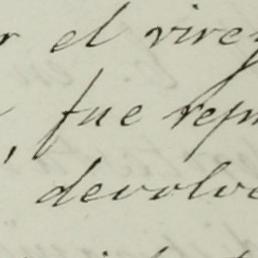 r el virey
, fue repr
devolve